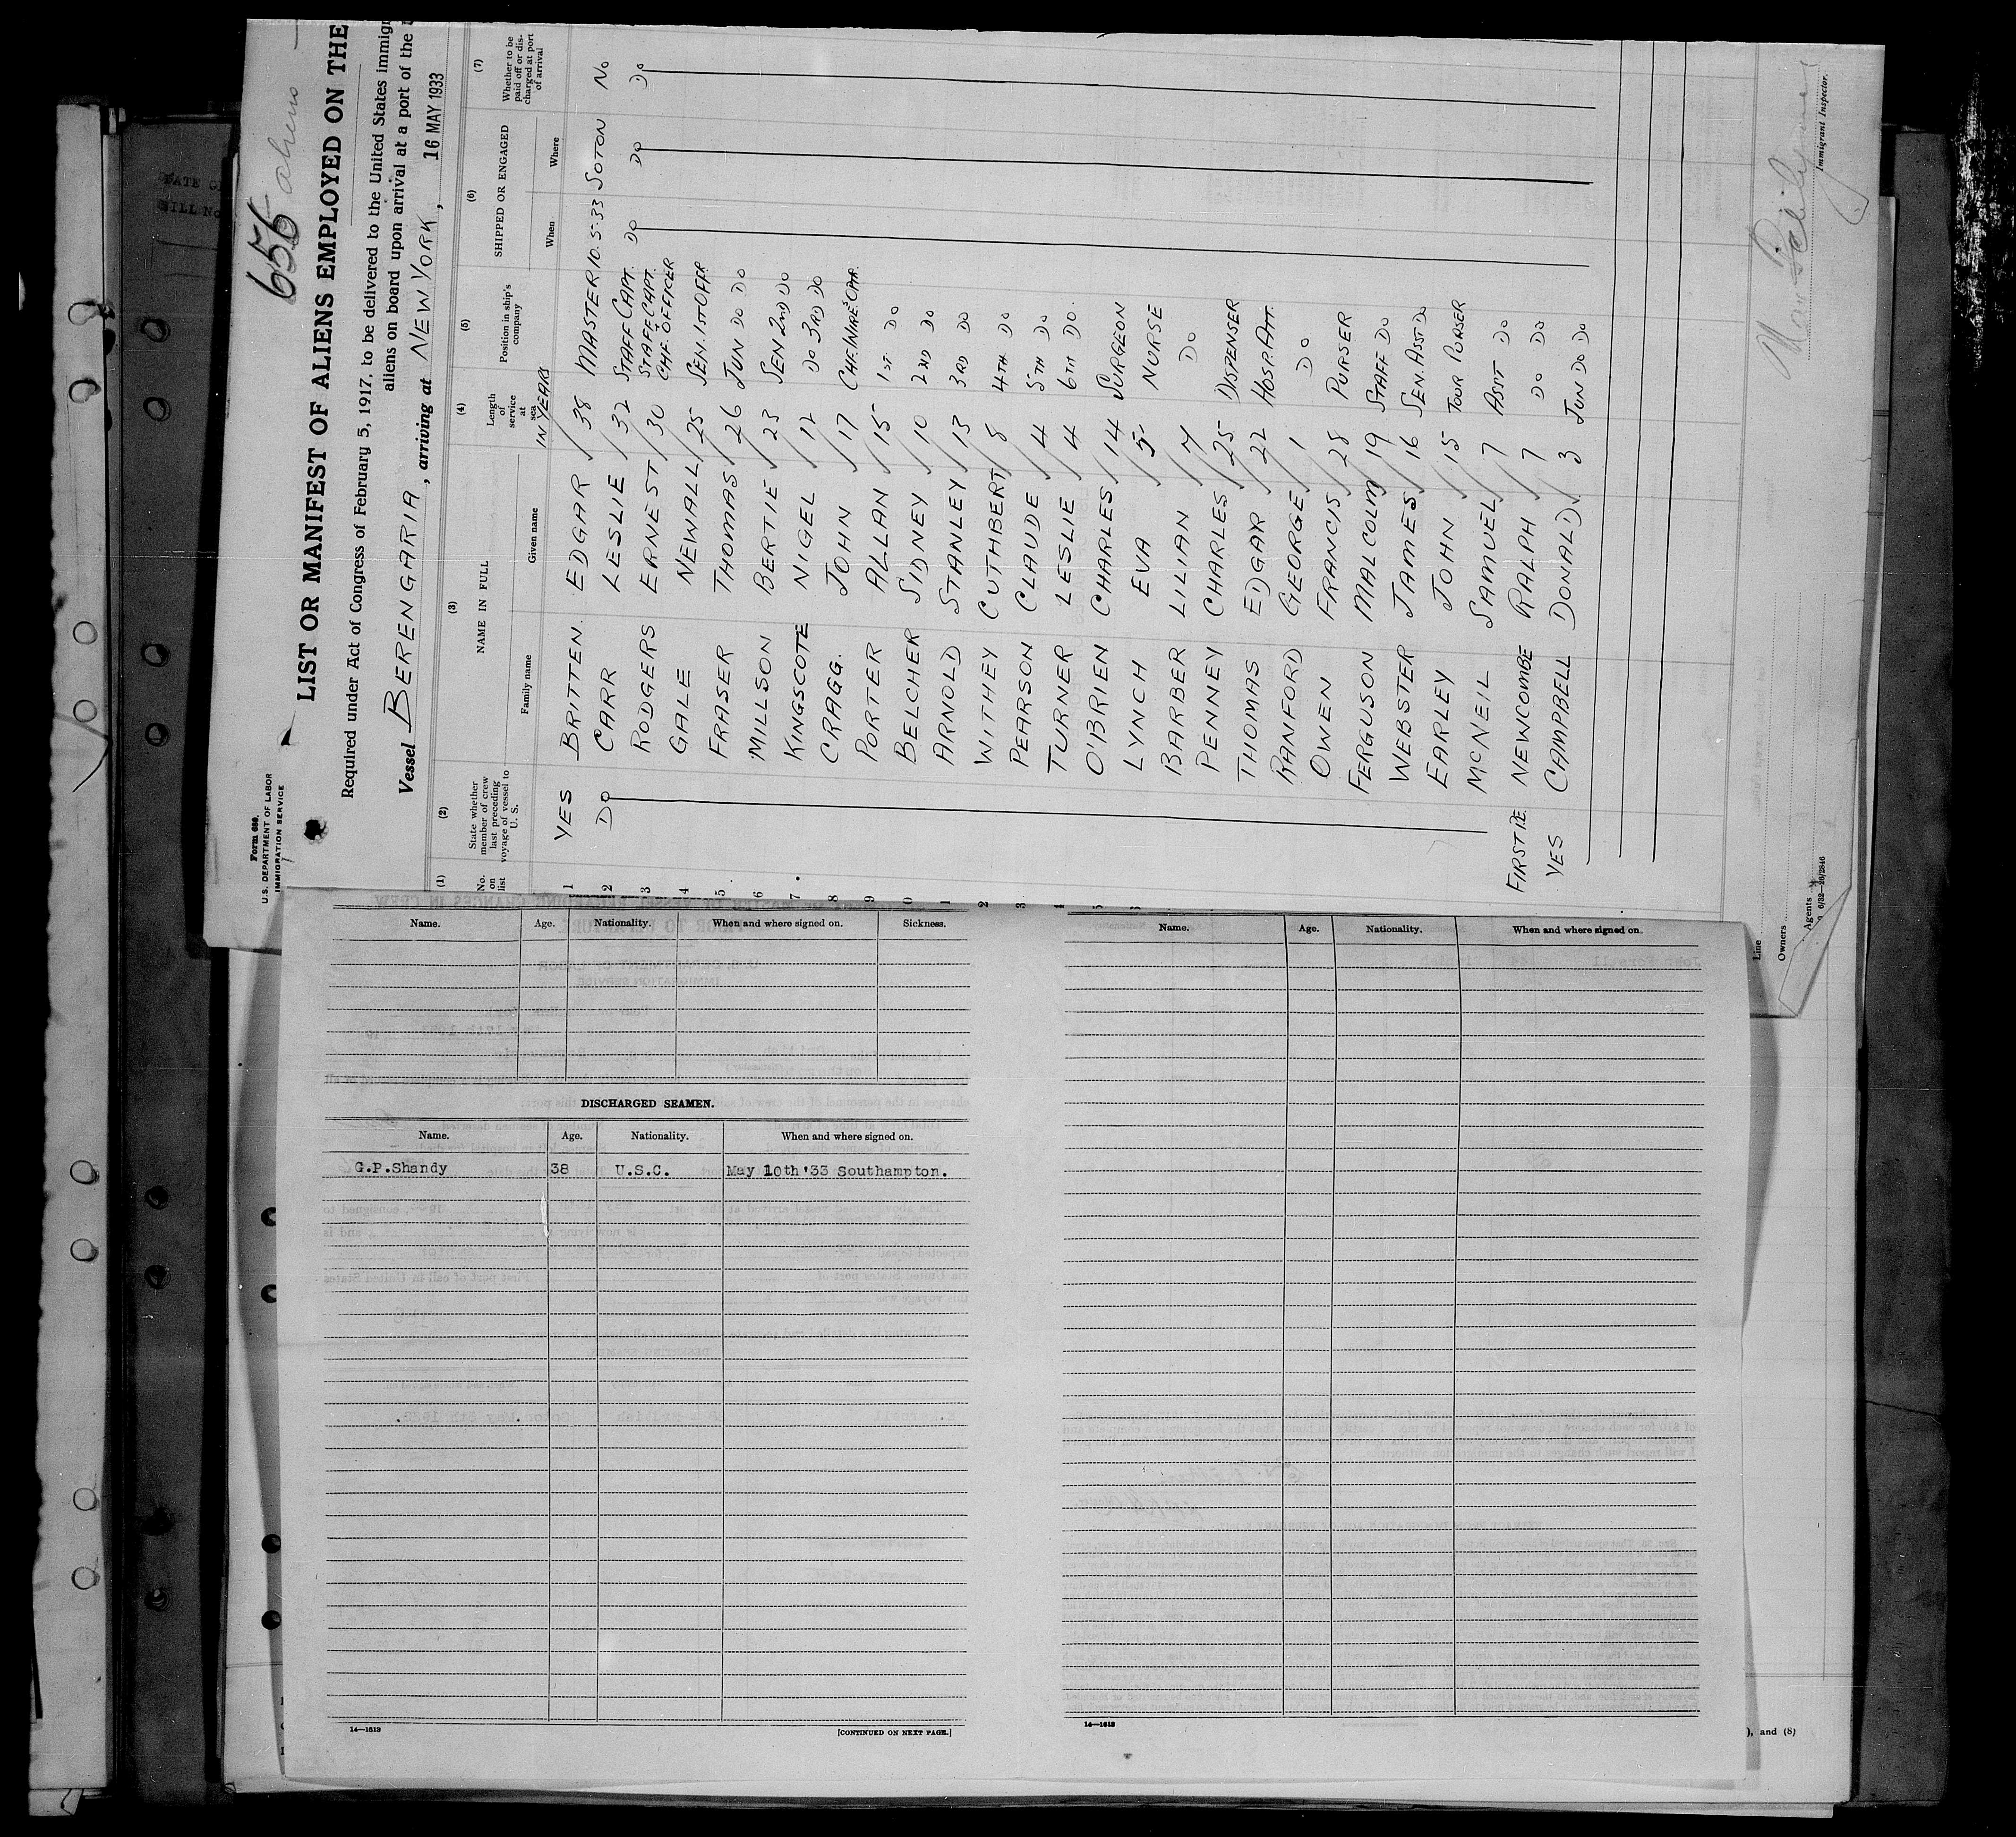 655 aliens
Form 680.
U.S. DEPARTMENT OF LABOR
IMMIGRATION SERVICE
LIST OR MANIFEST OF ALIENS EMPLOYED ON THE
Required under Act of Congress of February 5, 1917, to be delivered to the United States immigr
aliens on board upon arrival at a port of the
Vessel BERENGARIA, arriving at NEW YORK, 16 MAY 1933
(1) (2) (3) (4) (5) (6) (7)
No. on list
State whether member of crew last preceding voyage of vessel to U. S.
NAME IN FULL
Family name Given name
Length of service at sea
IN YEARS
Position in ship's company
SHIPPED OR ENGAGED
When Where
Whether to be paid off or discharged at port of arrival
1 YES BRITTEN. EDGAR 38 MASTER 10.5-33 SOTON NO
2 DO CARR LESLIE 32 STAFF CAPT. DO DO DO
3 RODGERS ERNEST 30 STAFF CAPT. CHF. OFFICER
4 GALE NEWALL 25 SEN. 1ST OFFR
5 FRASER THOMAS 26 JUN DO DO
6 MILLSON BERTIE 23 SEN 2ND DO
7 KINGSCOTE NIGEL 12 DO 3RD DO
8 CRAGG. JOHN 17 CHF. WIRE. OPR.
9 PORTER ALLAN 15 1ST DO
0 BELCHER SIDNEY 10 2ND DO
1 ARNOLD STANLEY 13 3RD DO
2 WITHEY CUTHBERT 8 4TH DO
3 PEARSON CLAUDE 4 5TH DO
4 TURNER LESLIE 4 6TH DO.
5 O'BRIEN CHARLES 14 SURGEON
6 LYNCH EVA 5 NURSE
BARBER LILIAN 7 DO
PENNEY CHARLES 25 DISPENSER
THOMAS EDGAR 22 HOSP. ATT.
RANFORD GEORGE 1 DO
OWEN FRANCIS 28 PURSER
FERGUSON MALCOLM 19 STAFF DO
WEBSTER JAMES 16 SEN. ASST DO
EARLEY JOHN 15 TOUR PURSER
MCNEIL SAMUEL 7 ASST DO
FIRST RE NEWCOMBE RALPH 7 DO DO
YES CAMPBELL DONALD. 3 JUN DO DO
Line
Owners
Agents
Immigrant Inspector.
Name. Age. Nationality. When and where signed on. Sickness.
DISCHARGED SEAMEN.
Name. Age. Nationality. When and where signed on.
G.P.Shandy 38 U.S.C. May 10th '33 Southampton.
14—1613
[CONTINUED ON NEXT PAGE.]
Name. Age. Nationality. When and where signed on.
14—1613
), and (8)